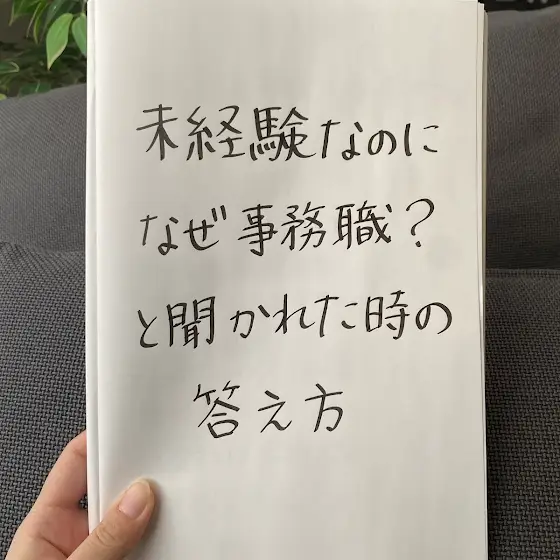 未経験なのに
なぜ事務職？
と聞かれた時の
答え方